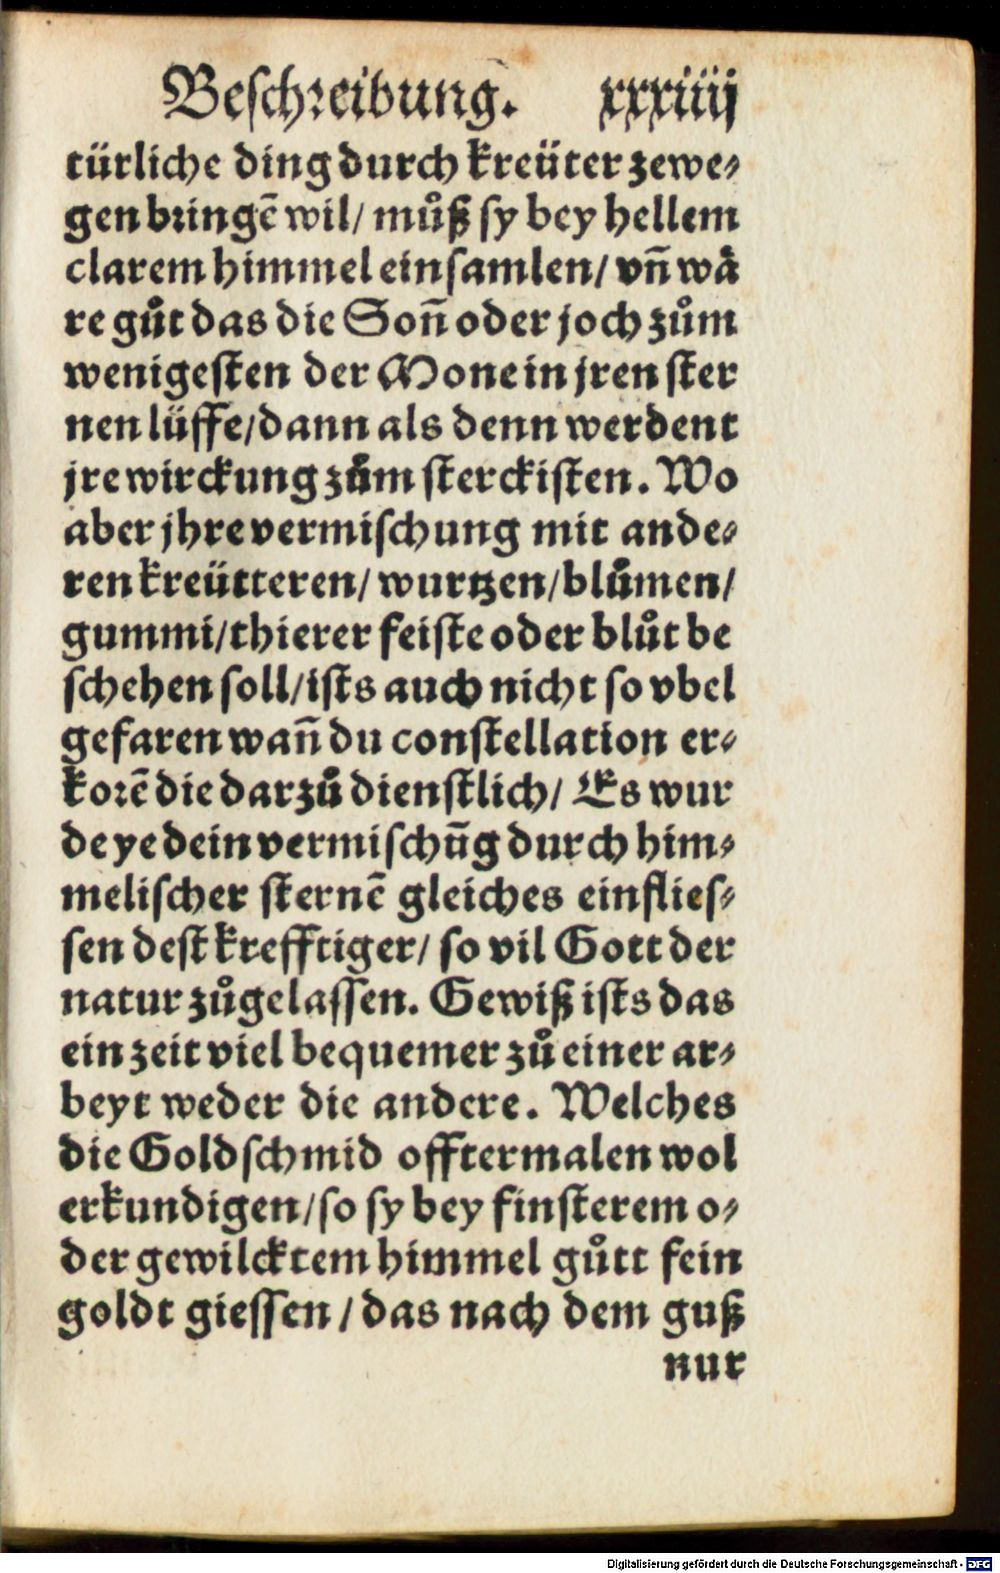 Beschreibung. xxxiiij
türliche ding durch kreüter zewe⸗
gen bringē wil/ můß sy bey hellem
clarem himmel einsamlen/ vn̄ wå
re gůt das die Son̄ oder joch zům
wenigesten der Mone in jren ster
nen lüffe/ dann als denn werdent
jre wirckung zům sterckisten. Wo
aber jhre vermischung mit ande⸗
ren kreütteren/ wurtzen/ blůmen/
gummi/ thierer feiste oder blůt be
schehen soll/ ists auch nicht so vbel
gefaren wan̄ du constellation er⸗
korē die darzů dienstlich/ Es wur
de ye dein vermischūg durch him⸗
melischer sternē gleiches einflies⸗
sen dest krefftiger/ so vil Gott der
natur zůgelassen. Gewiß ists das
ein zeit viel bequemer zů einer ar⸗
beyt weder die andere. Welches
die Goldschmid offtermalen wol
erkundigen/ so sy bey finsterem o⸗
der gewilcktem himmel gůtt fein
goldt giessen/ das nach dem guß
nur
Digitalisierung gefördert durch die Deutsche Forschungsgemeinschaft - DFG